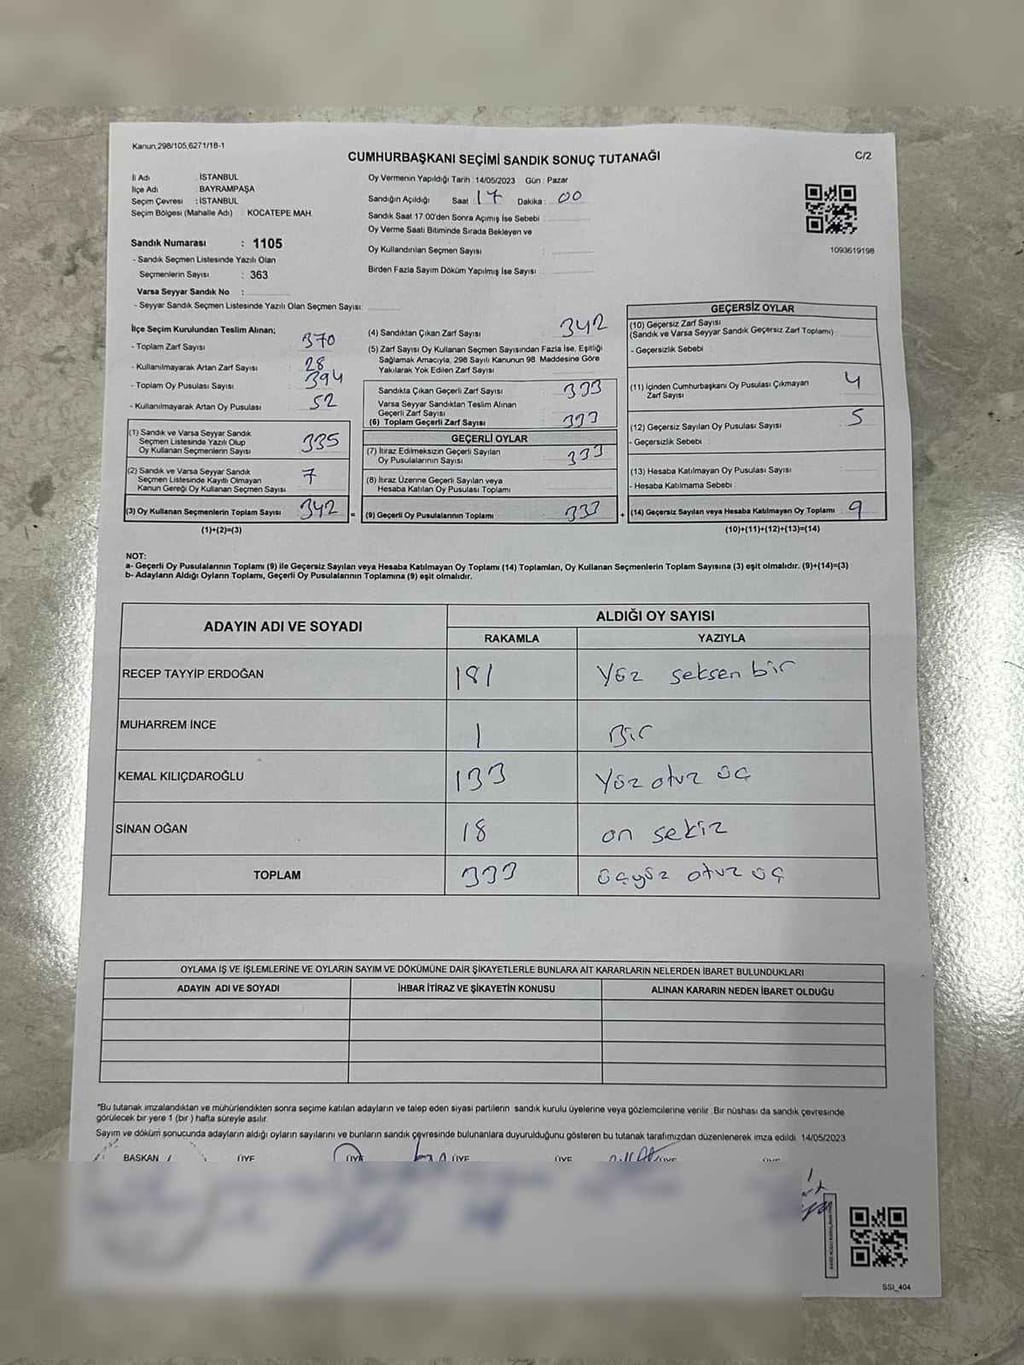 Kanun,298/105,6271/18-1
CUMHURBAŞKANI SEÇİMİ SANDIK SONUÇ TUTANAĞI
C/2
İl Adı : İSTANBUL
İlçe Adı : BAYRAMPAŞA
Seçim Çevresi : İSTANBUL
Seçim Bölgesi (Mahalle Adı) : KOCATEPE MAH.
Sandık Numarası : 1105
- Sandık Seçmen Listesinde Yazılı Olan
Seçmenlerin Sayısı : 363
Varsa Seyyar Sandık No :
- Seyyar Sandık Seçmen Listesinde Yazılı Olan Seçmen Sayısı:
Oy Vermenin Yapıldığı Tarih : 14/05/2023 Gün : Pazar
Sandığın Açıldığı Saat : 17 Dakika : 00
Sandık Saat 17:00'den Sonra Açımış İse Sebebi :
Oy Verme Saati Bitiminde Sırada Bekleyen ve
Oy Kullandırılan Seçmen Sayısı :
Birden Fazla Sayım Döküm Yapılmış İse Sayısı :
1093619198
İlçe Seçim Kurulundan Teslim Alınan;
- Toplam Zarf Sayısı 370
- Kullanılmayarak Artan Zarf Sayısı 28
- Toplam Oy Pusulası Sayısı 394
- Kullanılmayarak Artan Oy Pusulası 52
(1) Sandık ve Varsa Seyyar Sandık
Seçmen Listesinde Yazılı Olup
Oy Kullanan Seçmenlerin Sayısı 335
(2) Sandık ve Varsa Seyyar Sandık
Seçmen Listesinde Kayıtlı Olmayan
Kanun Gereği Oy Kullanan Seçmen Sayısı 7
(3) Oy Kullanan Seçmenlerin Toplam Sayısı 342 =
(1)+(2)=(3)
(4) Sandıktan Çıkan Zarf Sayısı 342
(5) Zarf Sayısı Oy Kullanan Seçmen Sayısından Fazla İse, Eşitliği
Sağlamak Amacıyla, 298 Sayılı Kanunun 98. Maddesine Göre
Yakılarak Yok Edilen Zarf Sayısı
Sandıkta Çıkan Geçerli Zarf Sayısı 333
Varsa Seyyar Sandıktan Teslim Alınan
Geçerli Zarf Sayısı
(6) Toplam Geçerli Zarf Sayısı 333
GEÇERLİ OYLAR
(7) İtiraz Edilmeksizin Geçerli Sayılan
Oy Pusulalarının Sayısı 333
(8) İtiraz Üzerine Geçerli Sayılan veya
Hesaba Katılan Oy Pusulası Toplamı
(9) Geçerli Oy Pusulalarının Toplamı 333 +
GEÇERSİZ OYLAR
(10) Geçersiz Zarf Sayısı
(Sandık ve Varsa Seyyar Sandık Geçersiz Zarf Toplamı)
- Geçersizlik Sebebi
(11) İçinden Cumhurbaşkanı Oy Pusulası Çıkmayan
Zarf Sayısı 4
(12) Geçersiz Sayılan Oy Pusulası Sayısı 5
- Geçersizlik Sebebi :
(13) Hesaba Katılmayan Oy Pusulası Sayısı
- Hesaba Katılmama Sebebi :
(14) Geçersiz Sayılan veya Hesaba Katılmayan Oy Toplamı 9
(10)+(11)+(12)+(13)=(14)
NOT:
a- Geçerli Oy Pusulalarının Toplamı (9) ile Geçersiz Sayılan veya Hesaba Katılmayan Oy Toplamı (14) Toplamları, Oy Kullanan Seçmenlerin Toplam Sayısına (3) eşit olmalıdır. (9)+(14)=(3)
b- Adayların Aldığı Oyların Toplamı, Geçerli Oy Pusulalarının Toplamına (9) eşit olmalıdır.
ADAYIN ADI VE SOYADI
ALDIĞI OY SAYISI
RAKAMLA YAZIYLA
RECEP TAYYİP ERDOĞAN 181 Yüz seksen bir
MUHARREM İNCE 1 Bir
KEMAL KILIÇDAROĞLU 133 Yüz otuz üç
SİNAN OĞAN 18 on sekiz
TOPLAM 333 üçyüz otuz üç
OYLAMA İŞ VE İŞLEMLERİNE VE OYLARIN SAYIM VE DÖKÜMÜNE DAİR ŞİKAYETLERLE BUNLARA AİT KARARLARIN NELERDEN İBARET BULUNDUKLARI
ADAYIN ADI VE SOYADI İHBAR İTİRAZ VE ŞİKAYETİN KONUSU ALINAN KARARIN NEDEN İBARET OLDUĞU
"Bu tutanak imzalandıktan ve mühürlendikten sonra seçime katılan adayların ve talep eden siyasi partilerin sandık kurulu üyelerine veya gözlemcilerine verilir. Bir nüshası da sandık çevresinde
görülecek bir yere 1 (bir) hafta süreyle asılır.
Sayım ve döküm sonucunda adayların aldığı oyların sayılarını ve bunların sandık çevresinde bulunanlara duyurulduğunu gösteren bu tutanak tarafımızdan düzenlenerek imza edildi. 14/05/2023
BAŞKAN ÜYE ÜYE ÜYE ÜYE ÜYE ÜYE
SSI_404